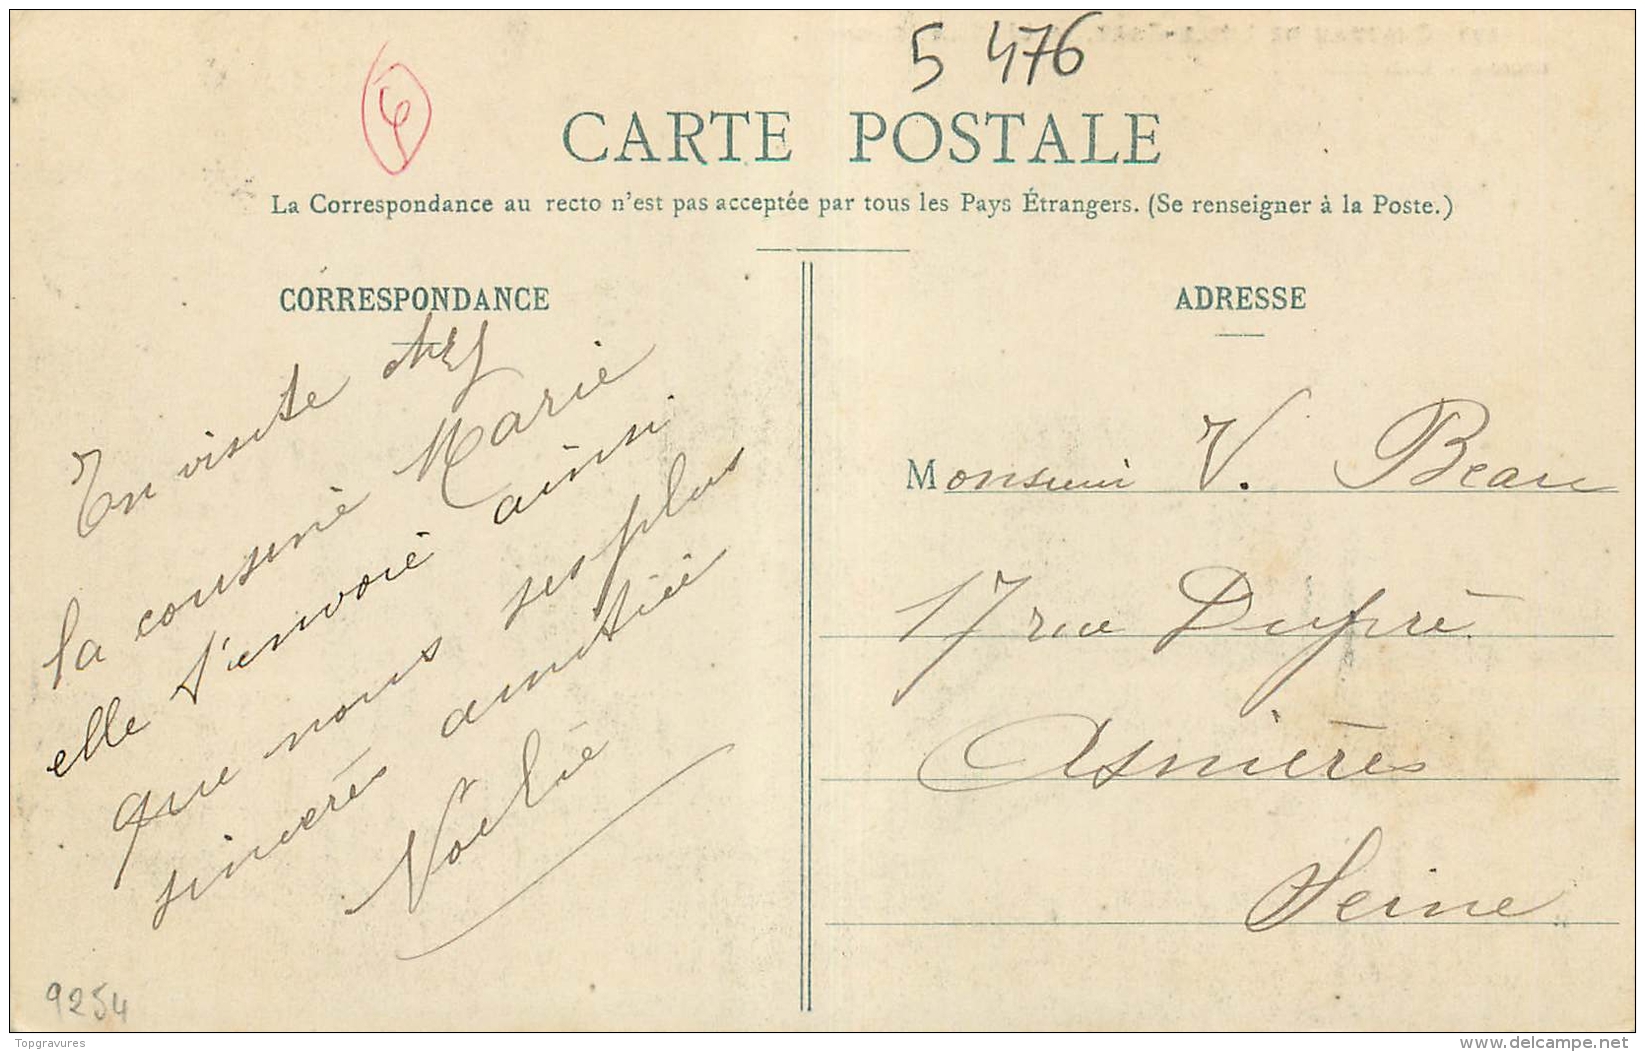 5 476
CARTE POSTALE
La Correspondance au recto n'est pas acceptée par tous les Pays Étrangers. (Se renseigner à la Poste.)
CORRESPONDANCE
En visite chez
la cousine Marie
elle t'envoie ainsi
que nous ses plus
sincères amitiés
Noélie
9254
ADRESSE
Monsieur V. Beau
17 rue Dupré
Asnières
Seine
Topgravures
www.delcampe.net